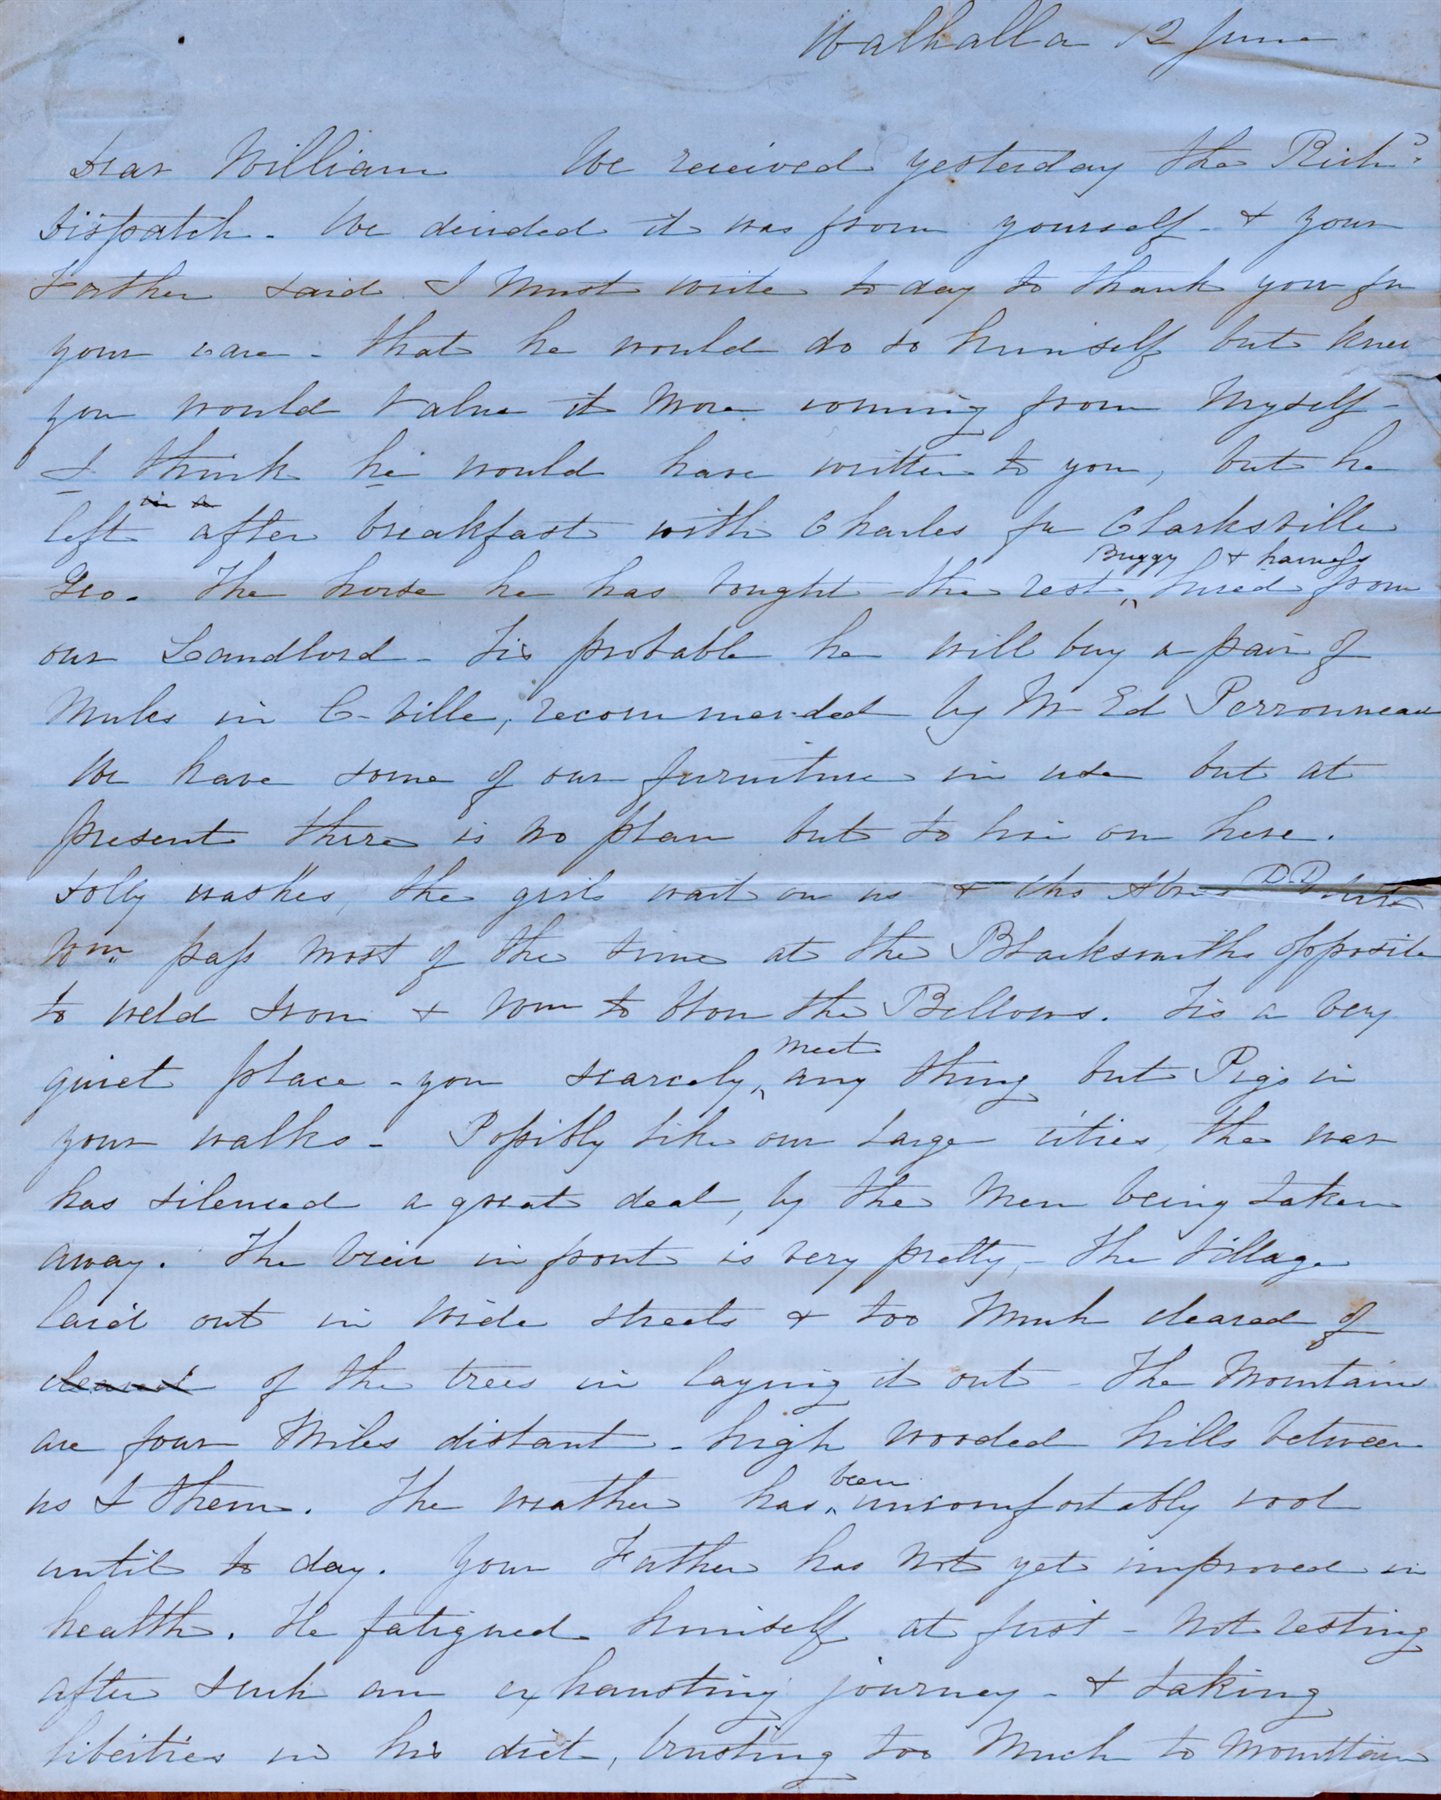 Walhalla 12 June
Dear William We received yesterday the Richd
Dispatch. We decided it was from yourself - & your
Father said I must write to day to thank you for
your care - that he would do so himself but knew
you would value it more coming from Myself -
I think he would have written to you, but he
left after breakfast with Charles for Clarksville
Geo. The horse he has bought - the rest, Buggy & harness hired from
our Landlord - Tis probable he will buy a pair of
Mules in C-ville, recommended by Mr Ed Perronneau
We have some of our furniture in use but at
present there is no plan but to live on here.
Dolly washes, the girls wait on us &
Wm. pass most of the time at the Blacksmiths opposite
to weld Iron & Wm to blow the Bellows. Tis a very
quiet place - you scarcely meet any thing but Pigs in
your walks - Possibly like our large cities, the war
has silenced a great deal, by the Men being taken
away. The view in front is very pretty, - the Village
laid out in wide streets & too Much cleared of
cleared of the trees in laying it out - The Mountains
are four Miles distant - high wooded hills between
us & them. The weather has been uncomfortably cool
until to day. Your Father has not yet improved in
health. He fatigued himself at first - not resting
after such an exhausting journey - & taking
liberties in his diet, trusting too Much to Mountain